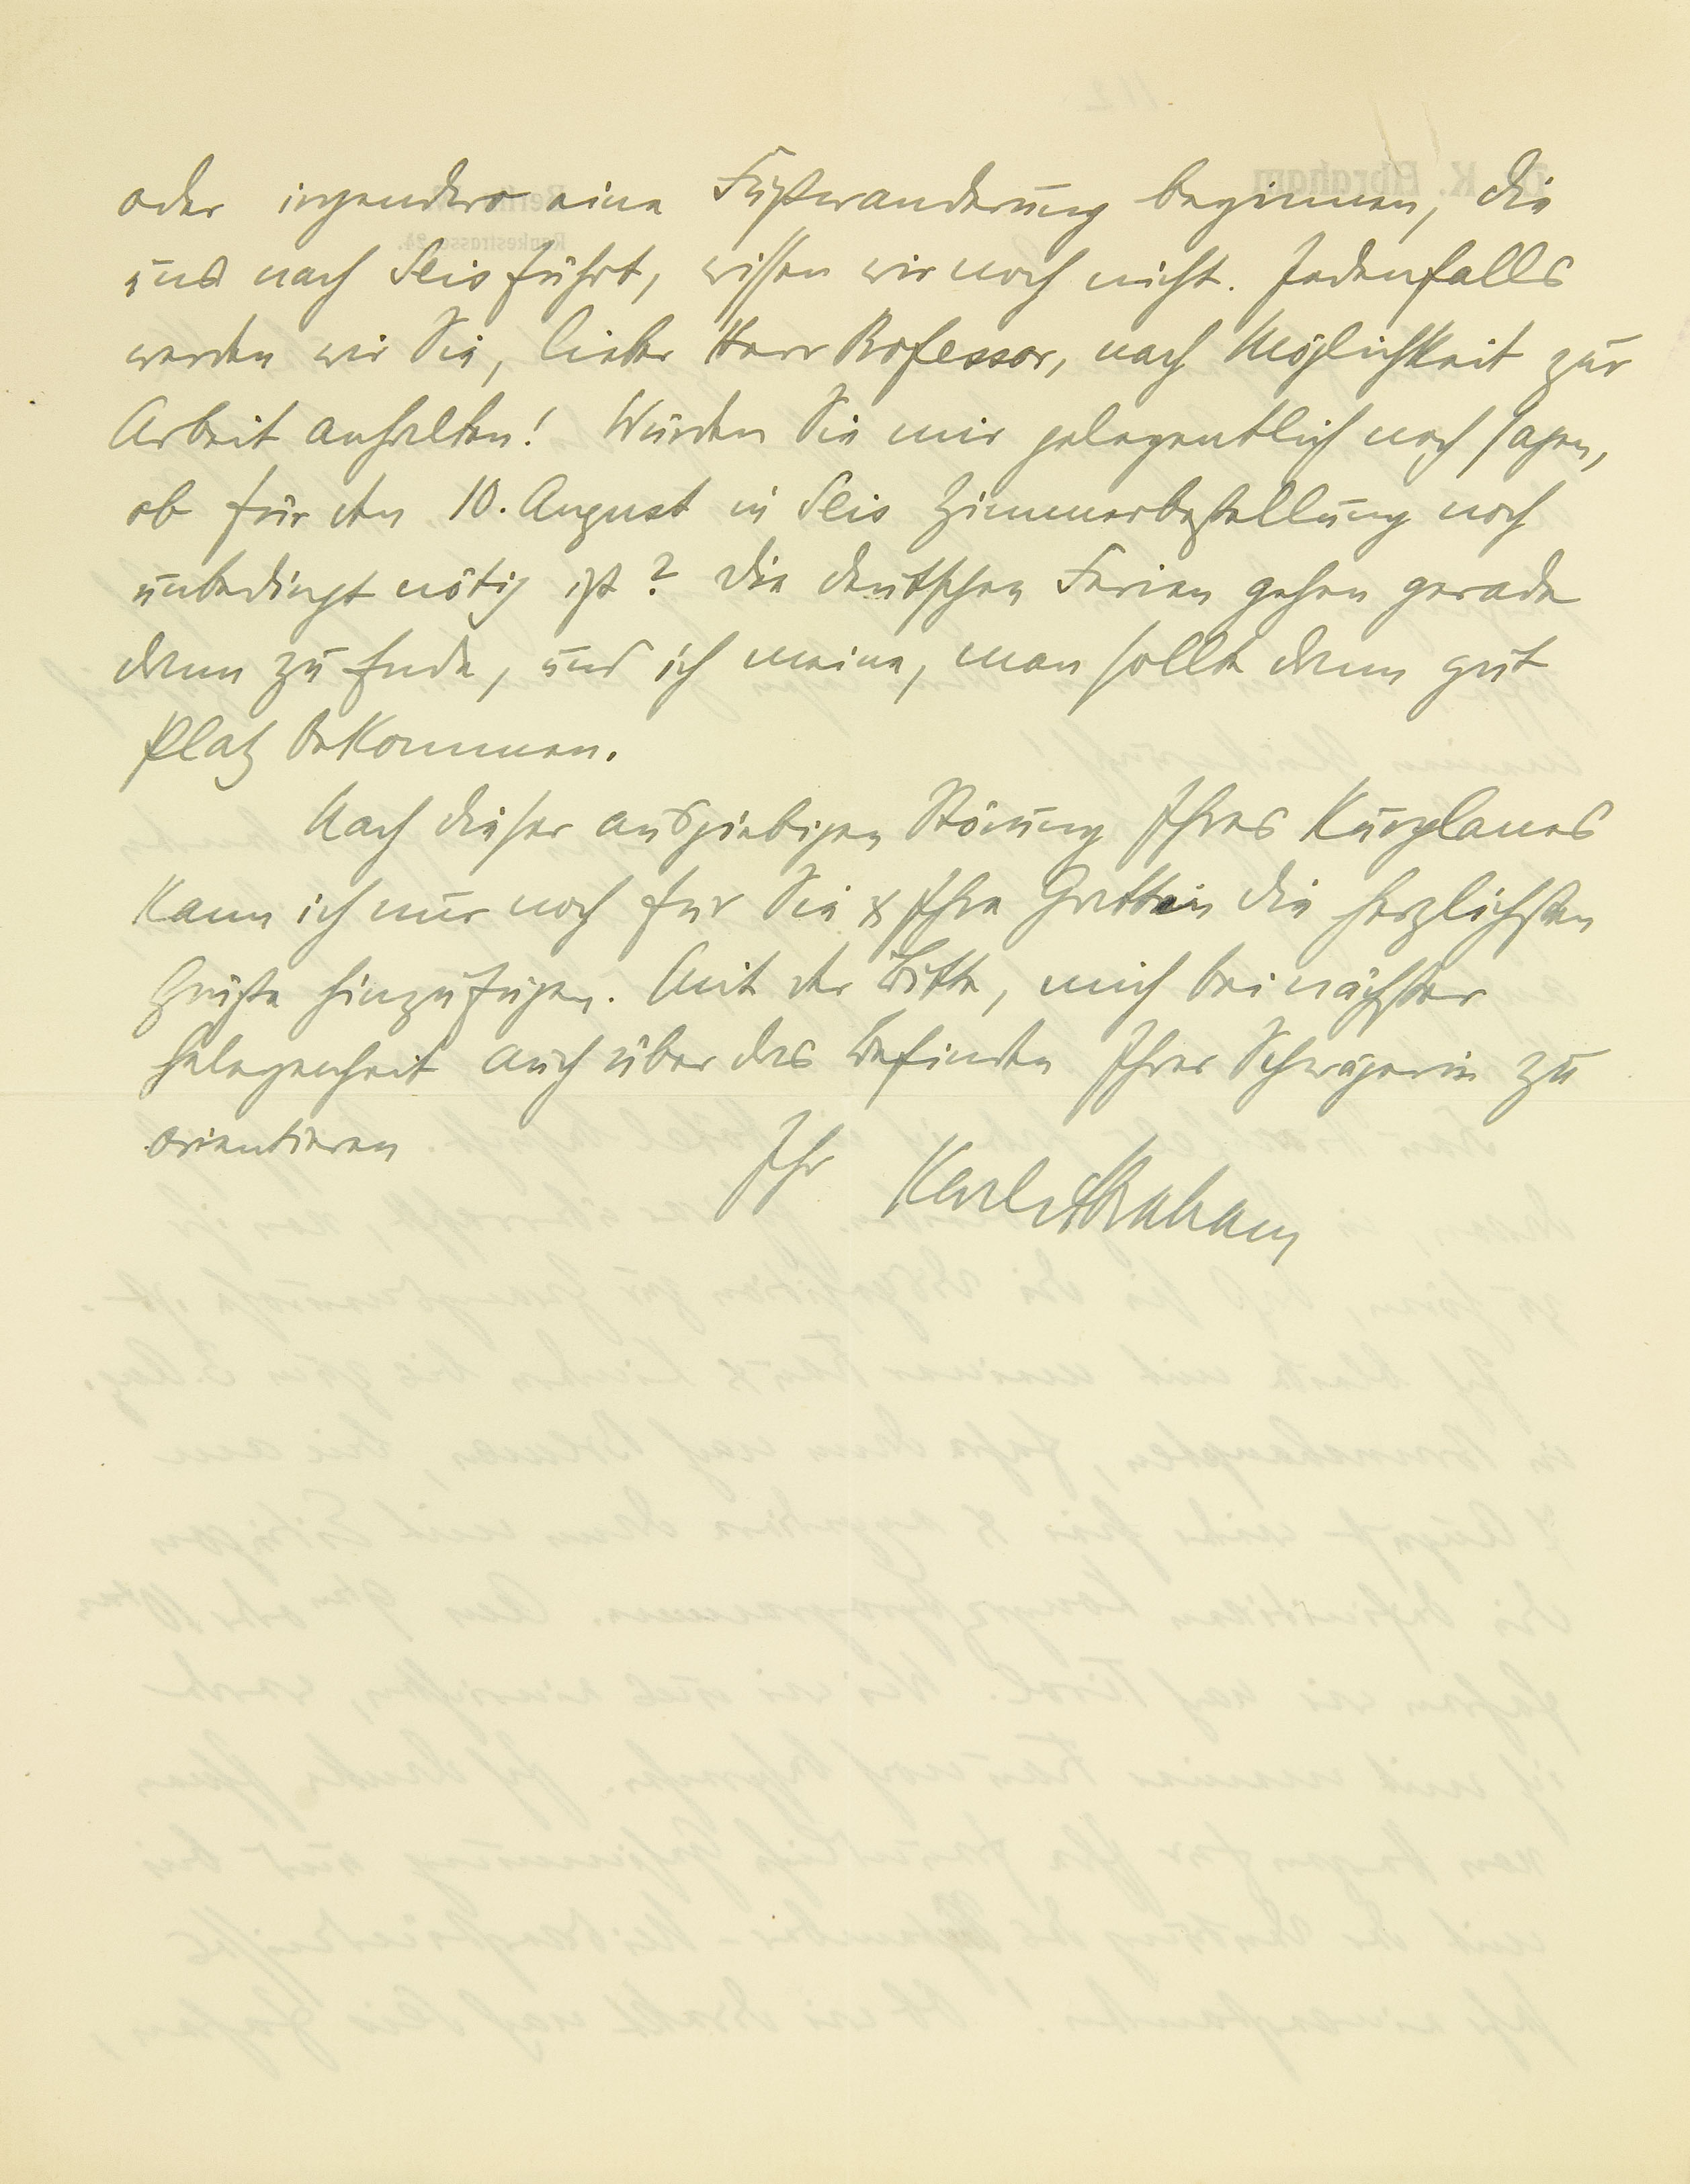 oder irgendwo eine Fußwanderung beginnen, die
uns nach Seis führt, wissen wir noch nicht. Jedenfalls
werden wir Sie, lieber Herr Professor, nach Möglichkeit zur
Arbeit anhalten! Würden Sie mir gelegentlich noch sagen,
ob für den 10. August in Seis Zimmerbestellung noch
unbedingt nötig ist? Die deutschen Ferien gehen gerade
dann zu Ende, und ich meine, man sollte dann gut
Platz bekommen.
Nach dieser ausgiebigen Störung Ihres Kurplanes
kann ich nur noch für Sie & Ihre Gattin die herzlichsten
Grüße hinzufügen. Mit der Bitte, mich bei nächster
Gelegenheit auch über das Befinden Ihrer Schwägerin zu
orientieren
Ihr Karl Abraham